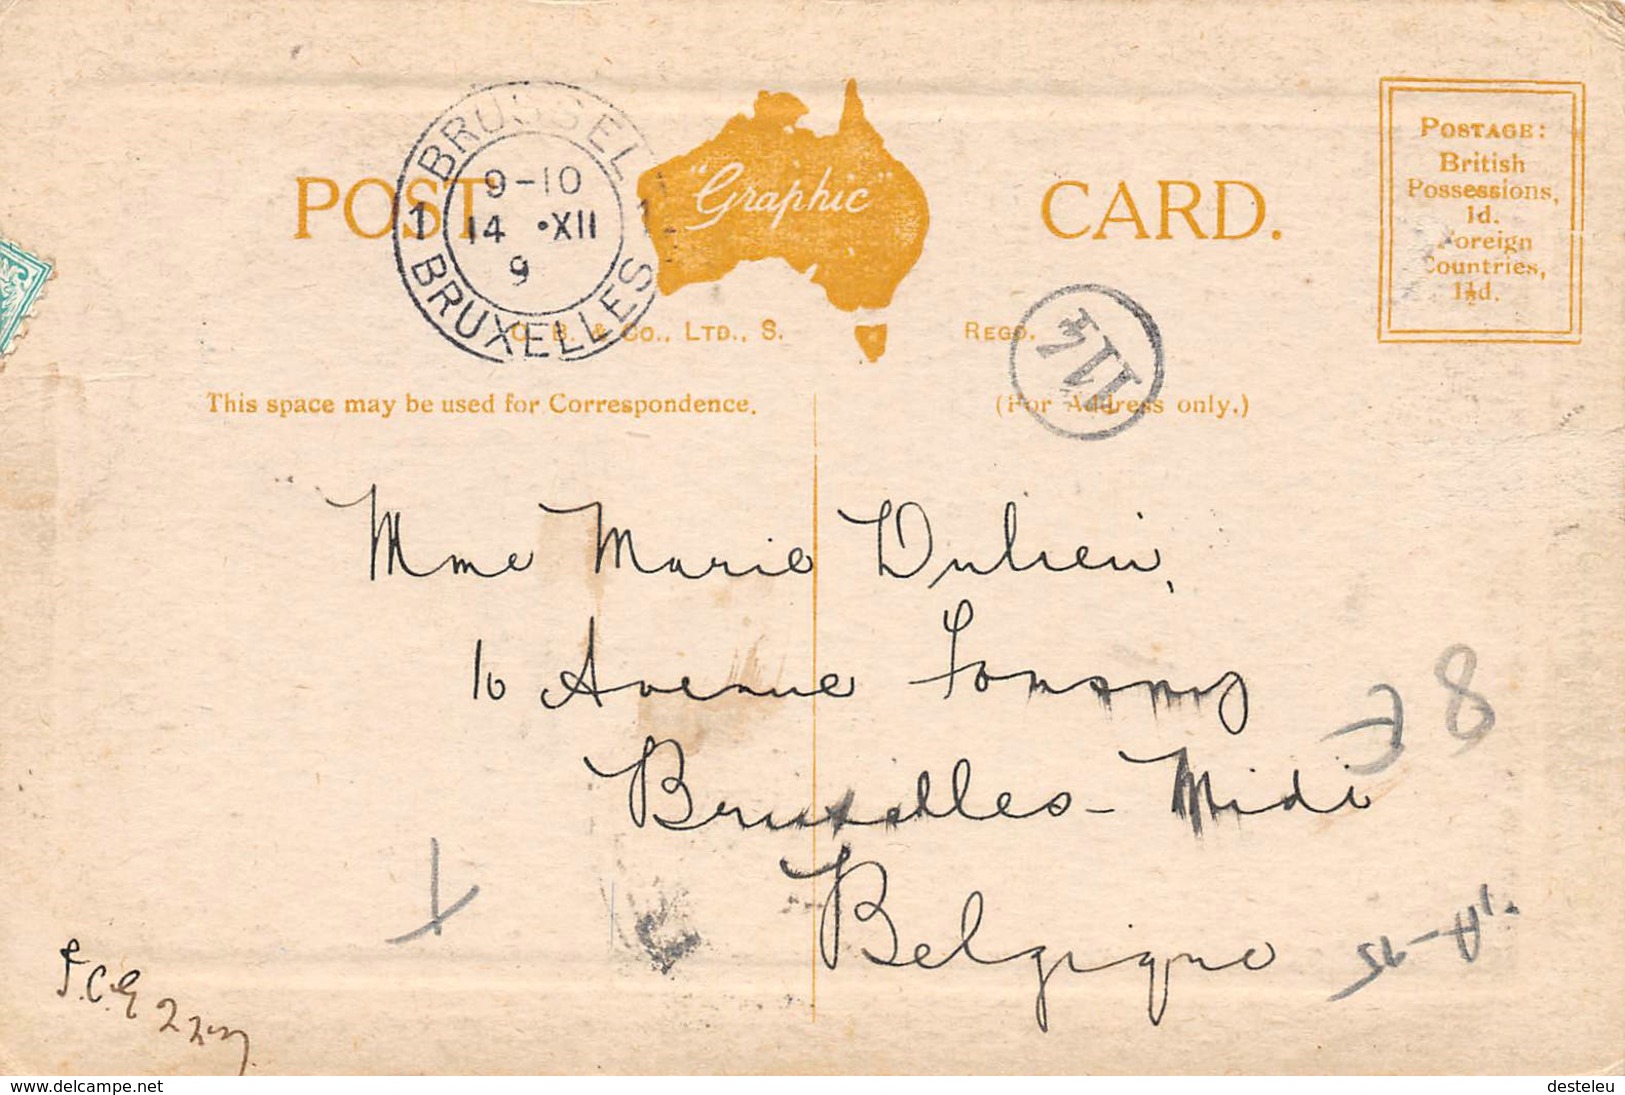 BRUSSEL
9-10
1 14 •XII 1
9
BRUXELLES
POST
"Graphic"
CARD.
POSTAGE:
British
Possessions,
1d.
Foreign
Countries,
1½d.
O. B. & Co., LTD., S.
REGD.
114
This space may be used for Correspondence.
(For Address only.)
Mme Marie Dulieu,
10 Avenue
Bruxelles - Midi
Belgique
8
T
www.delcampe.net
desteleu